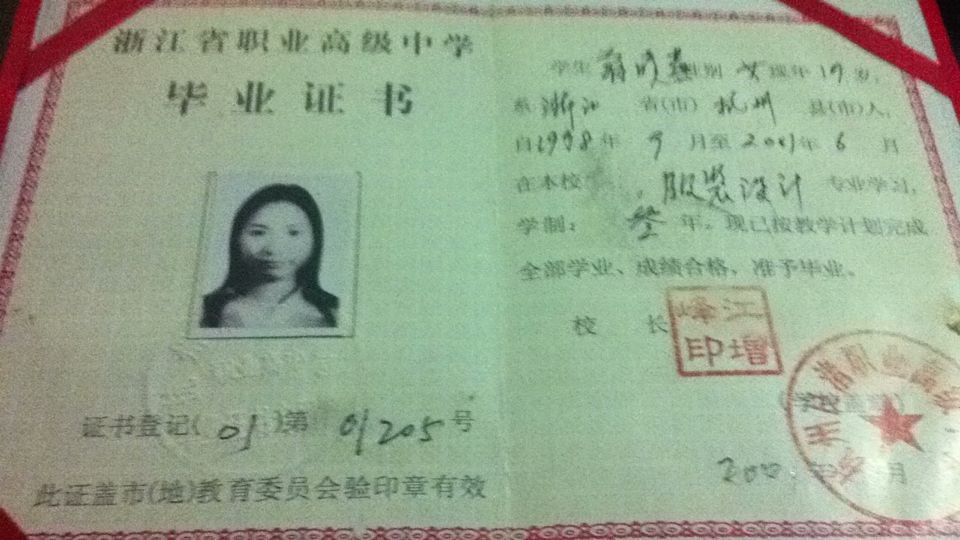 浙江省职业高级中学
毕业证书
证书登记(01)第01205号
此证盖市(地)教育委员会验印章有效
学生 性别女现年19岁,
系浙江省(市)杭州县(市)人,
自1998年9月至2001年6月
在本校服装设计专业学习,
学制:叁年。现已按教学计划完成
全部学业、成绩合格,准予毕业。
校长
江增
印
年 月